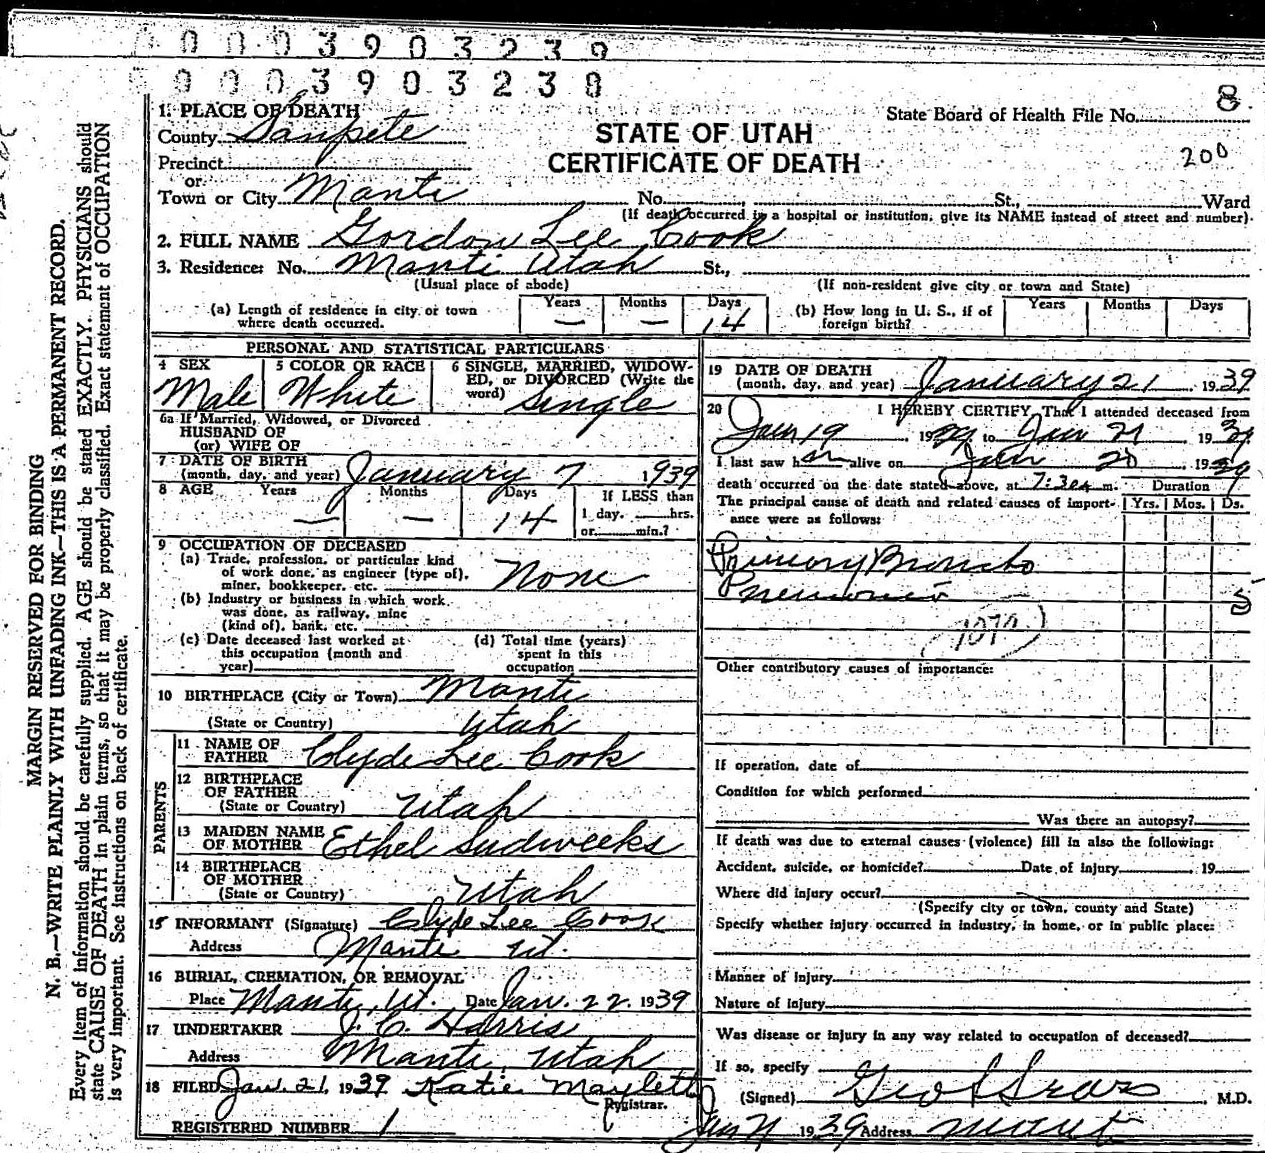 0003903239
0003903238
1. PLACE OF DEATH
County Sanpete
Precinct
or
Town or City Manti No. , St., Ward
(If death occurred in a hospital or institution, give its NAME instead of street and number).
State Board of Health File No. 8
200
STATE OF UTAH
CERTIFICATE OF DEATH
2. FULL NAME Gordon Lee Cook
3. Residence: No. Manti Utah St.,
(Usual place of abode) (If non-resident give city or town and State)
(a) Length of residence in city or town where death occurred. Years — Months — Days 14
(b) How long in U. S., if of foreign birth? Years Months Days
PERSONAL AND STATISTICAL PARTICULARS
4 SEX Male
5 COLOR OR RACE White
6 SINGLE, MARRIED, WIDOWED, or DIVORCED (Write the word) Single
6a If Married, Widowed, or Divorced
HUSBAND OF
(or) WIFE OF
7 DATE OF BIRTH
(month, day, and year) January 7 1939
8 AGE Years — Months — Days 14
If LESS than
1 day, hrs.
or min.?
9 OCCUPATION OF DECEASED
(a) Trade, profession, or particular kind
of work done, as engineer (type of),
miner, bookkeeper, etc. None
(b) Industry or business in which work
was done, as railway, mine
(kind of), bank, etc.
(c) Date deceased last worked at
this occupation (month and
year)
(d) Total time (years)
spent in this
occupation
10 BIRTHPLACE (City or Town) Manti
(State or Country) Utah
PARENTS
11 NAME OF
FATHER Clyde Lee Cook
12 BIRTHPLACE
OF FATHER
(State or Country) Utah
13 MAIDEN NAME
OF MOTHER Ethel Sudweeks
14 BIRTHPLACE
OF MOTHER
(State or Country) Utah
15 INFORMANT (Signature) Clyde Lee Cook
Address Manti Ut.
16 BURIAL, CREMATION, OR REMOVAL
Place Manti, Ut. Date Jan. 22. 1939
17 UNDERTAKER J. C. Harris
Address Manti, Utah
18 FILED Jan. 21, 1939 Katie Maylett
Registrar.
REGISTERED NUMBER 1
19 DATE OF DEATH
(month, day, and year) January 21 , 1939
20 I HEREBY CERTIFY, That I attended deceased from
Jan 19 1939, to Jan 21 1939
I last saw him alive on Jan 20 , 1939
death occurred on the date stated above, at 7:30a m. Duration
The principal cause of death and related causes of importance were as follows: Yrs. Mos. Ds.
Primary Broncho
Pneumonia 5
107a
Other contributory causes of importance:
If operation, date of
Condition for which performed
Was there an autopsy?
If death was due to external causes (violence) fill in also the following:
Accident, suicide, or homicide? Date of injury , 19
Where did injury occur?
(Specify city or town, county and State)
Specify whether injury occurred in industry, in home, or in public place:
Manner of injury
Nature of injury
Was disease or injury in any way related to occupation of deceased?
If so, specify
(Signed) Geo L Sears , M.D.
Jan 21 1939 Address Manti
MARGIN RESERVED FOR BINDING
N. B.—WRITE PLAINLY WITH UNFADING INK—THIS IS A PERMANENT RECORD.
Every item of information should be carefully supplied. AGE should be stated EXACTLY. PHYSICIANS should
state CAUSE OF DEATH in plain terms, so that it may be properly classified. Exact statement of OCCUPATION
is very important. See instructions on back of certificate.